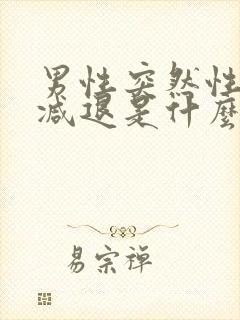 男性突然性
减退是什麼
易宗禅